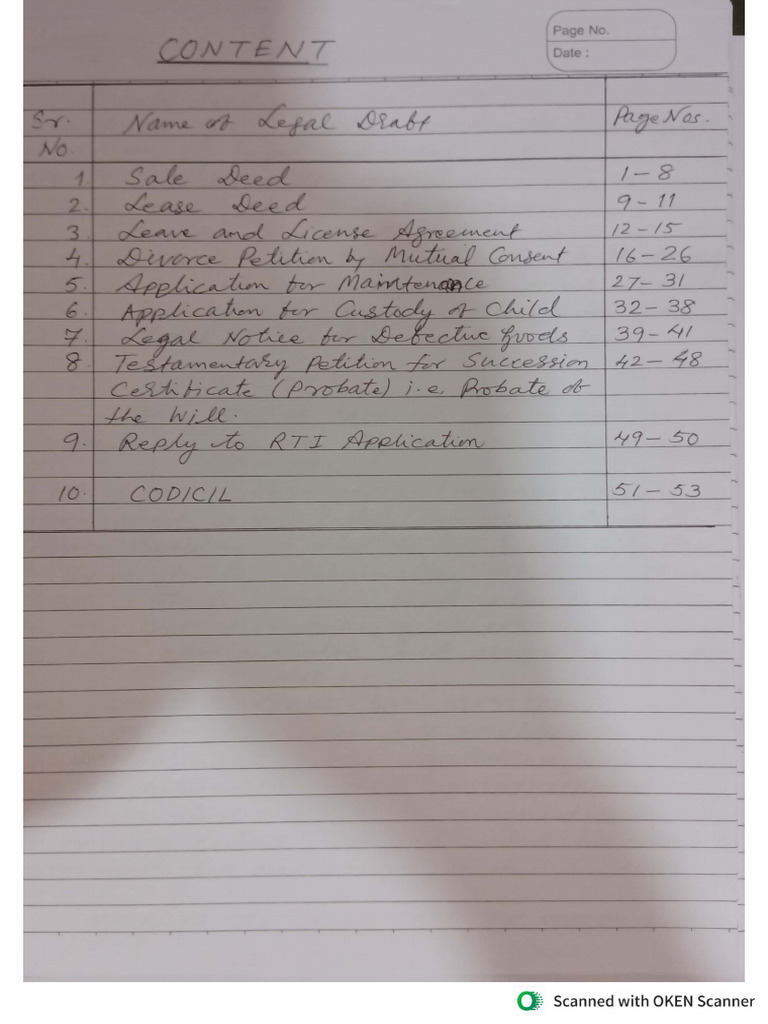 CONTENT
Page No.
Date :
Sr. No. Name of Legal Draft Page Nos.
1. Sale Deed 1-8
2. Lease Deed 9-11
3. Leave and License Agreement 12-15
4. Divorce Petition by Mutual Consent 16-26
5. Application for Maintenance 27-31
6. Application for Custody of Child 32-38
7. Legal Notice for Defective Goods 39-41
8. Testamentary Petition for Succession 42-48
Certificate (Probate) i.e. Probate of
the Will.
9. Reply to RTI Application 49-50
10. CODICIL 51-53
Scanned with OKEN Scanner